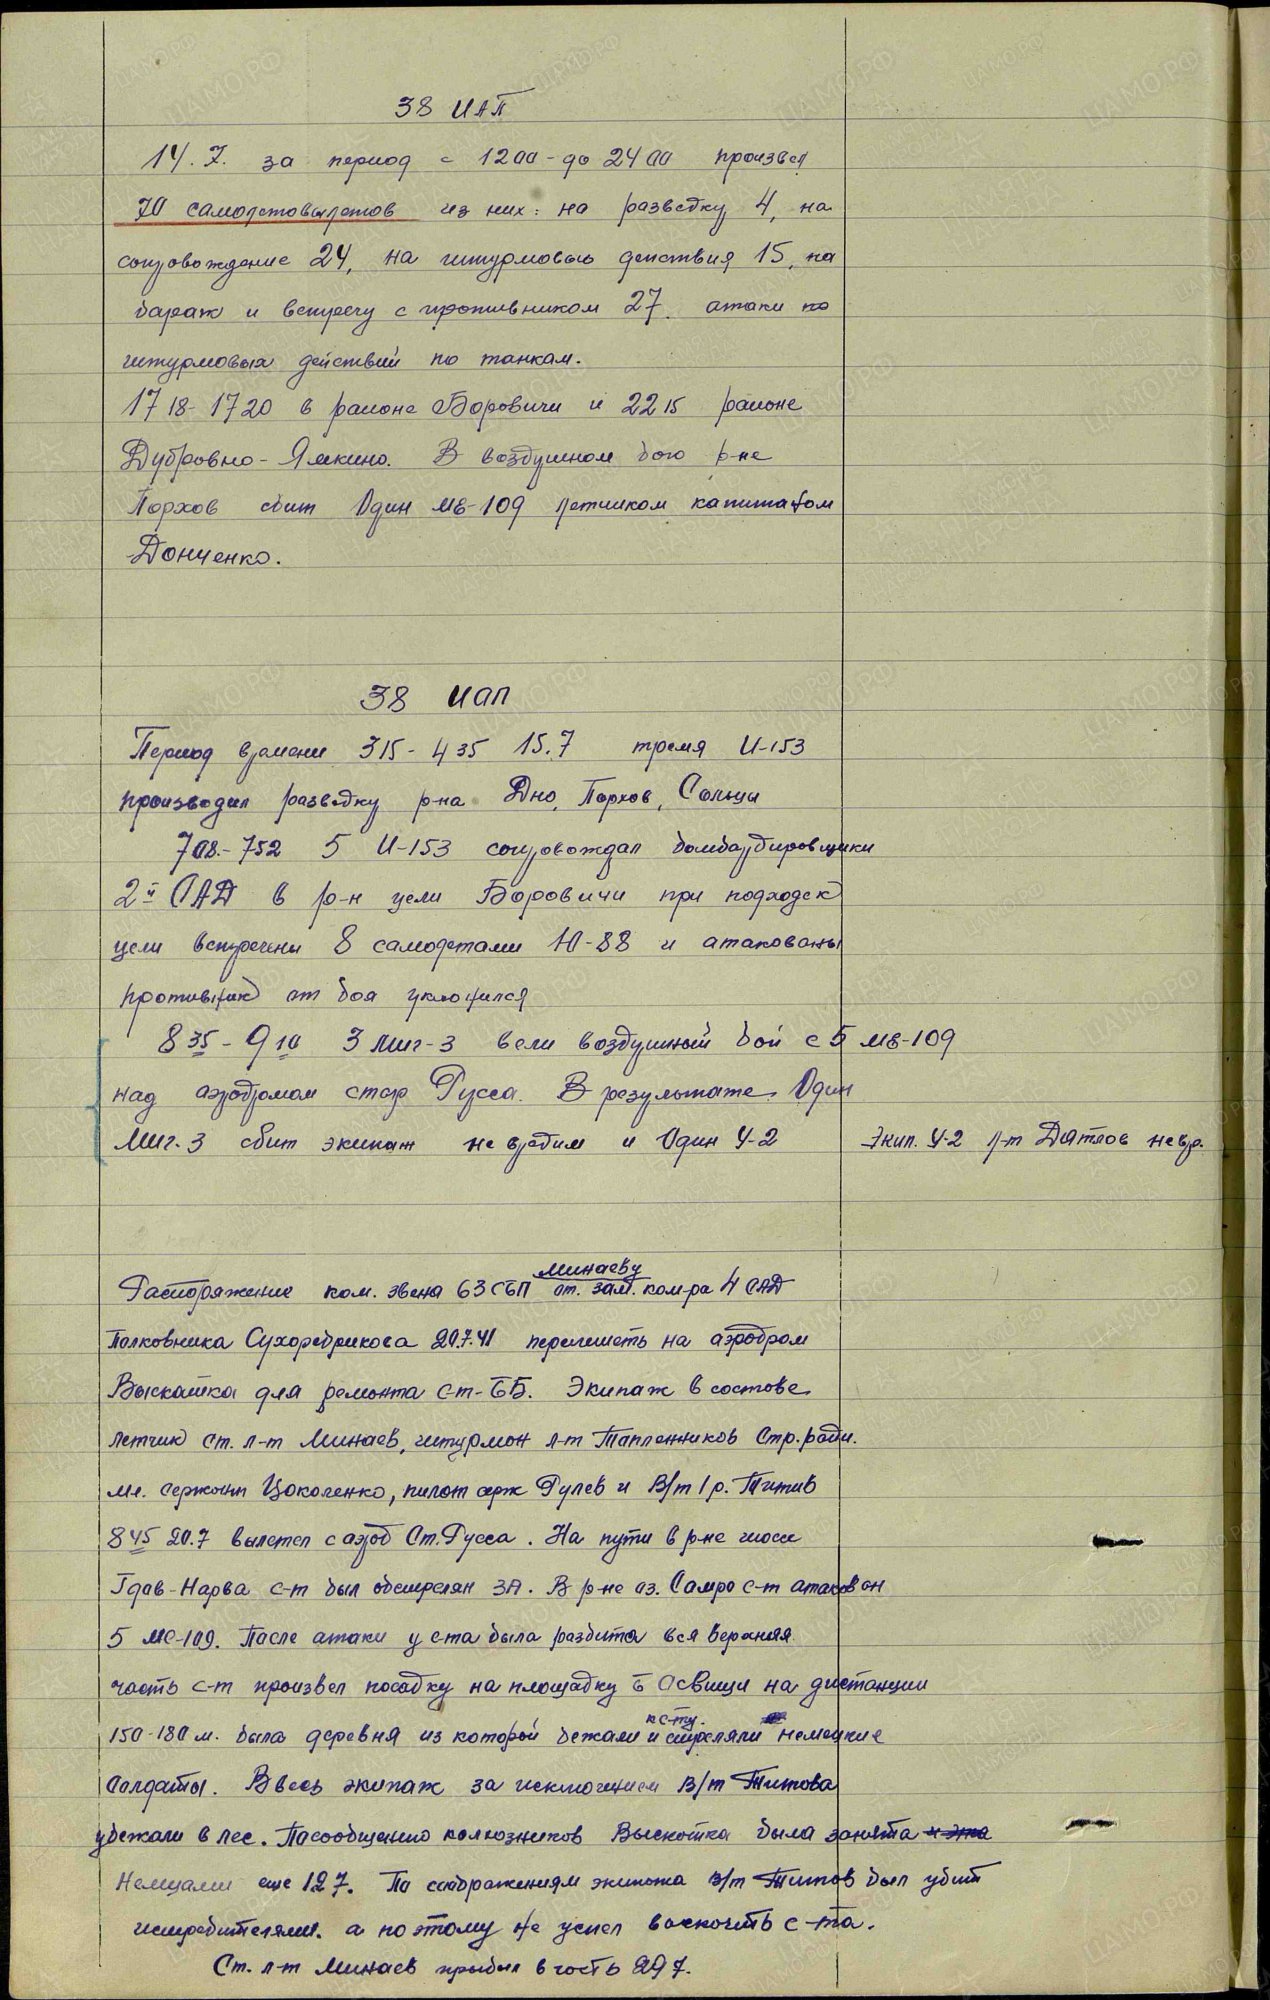 38 ИАП
14.7. за период с 1200 - до 2400 произвел
70 самолетовылетов из них: на разведку 4, на
сопровождение 24, на штурмовые действия 15, на
бараж и встречу с противником 27. атаки по
штурмовых действий по танкам.
1718-1720 в районе Боровичи и 2215 районе
Дубровно-Ямкино. В воздушном бою р-не
Порхов сбит Один МЕ-109 летчиком капитаном
Донченко.
38 ИАП
Период времени 315-435 15.7 тремя И-153
производил разведку р-на Дно, Порхов, Сольцы
708.-752 5 И-153 сопровождал бомбардировщики
2й САД в р-н цели Боровичи при подходе к
цели встречены 8 самолетами Ю-88 и атакованы
противник от боя уклонился
835-910 3 миг-3 вели воздушный бой с 5 МЕ-109
над аэродромом стар Русса. В результате Один
Миг-3 сбит экипаж невредим и Один У-2 Экип. У-2 л-т Дятлов невр.
минаеву
Распоряжение ком. звена 63 СБП от. зам. ком-ра 4 САД
Полковника Сухоребрикова 20.7.41 перелететь на аэродром
Выскатка для ремонта с-т-ББ. Экипаж в составе
летчик ст. л-т Минаев, штурман л-т Тапленников Стр. ради.
мл. сержант Цоколенко, пилот серж Рулев и В/т 1 р. Титив
845 20.7 вылетел с аэрод Ст. Русса. На пути в р-не шоссе
Гдов-Нарва с-т был обстрелян ЗА. В р-не оз. Самро с-т атакован
5 МЕ-109. После атаки у с-та была разбита вся верхняя
часть с-т произвел посадку на площадку Освищи на дистанции
по с-ту.
150-180 м. была деревня из которой бежали и стреляли немецкие
Солдаты. Ввесь экипаж за исключением В/т Титова
убежали в лес. Пасообщению колхозников Выскотка была занята
Немцами еще 12 7. По соображениям экипажа В/т Титов был убит
истребителями. а поэтому не успел воскочить с-та.
Ст. л-т Минаев прибыл в часть 29 7.